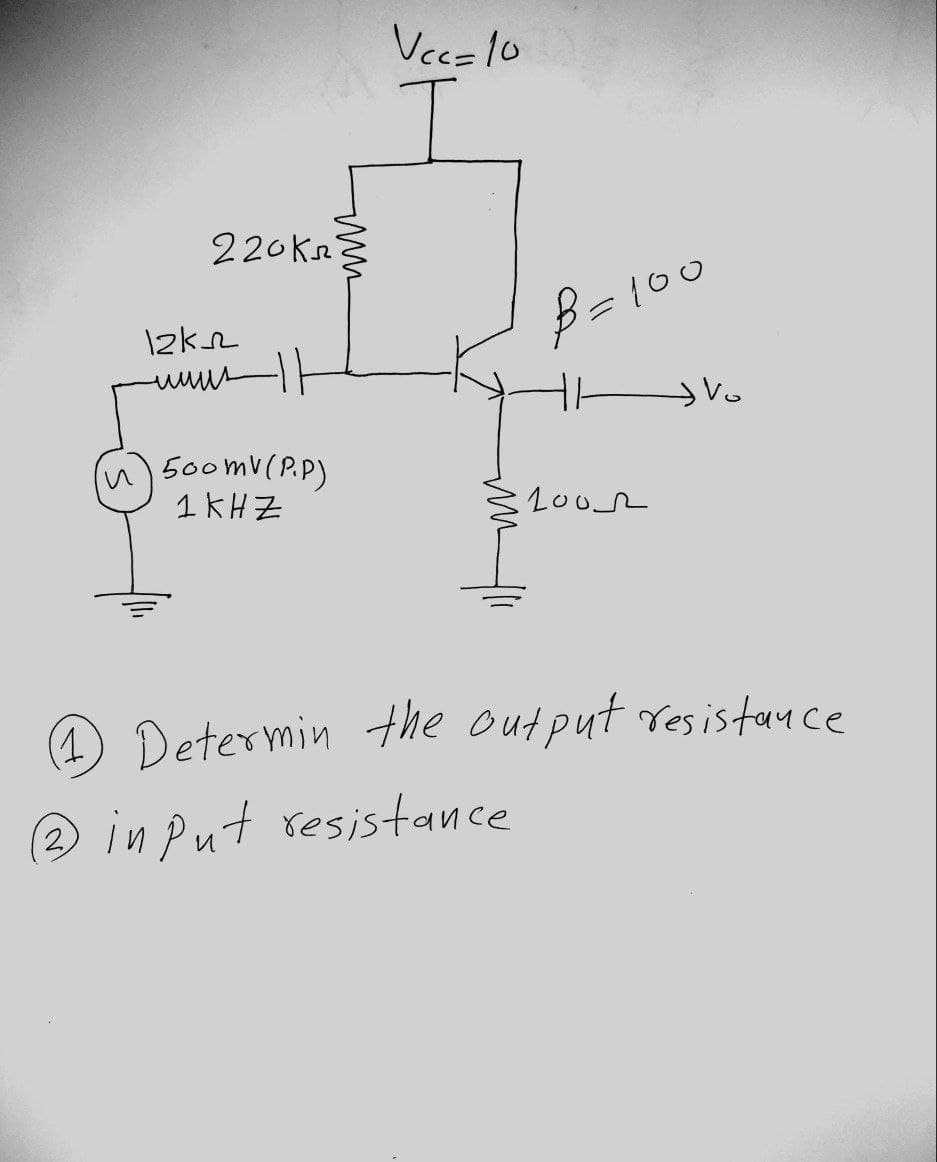 Vcc=10
220KΩ
β=100
12kΩ
Vo
500mV(P.P)
1KHZ
100Ω
① Determin the output resistance
② input resistance